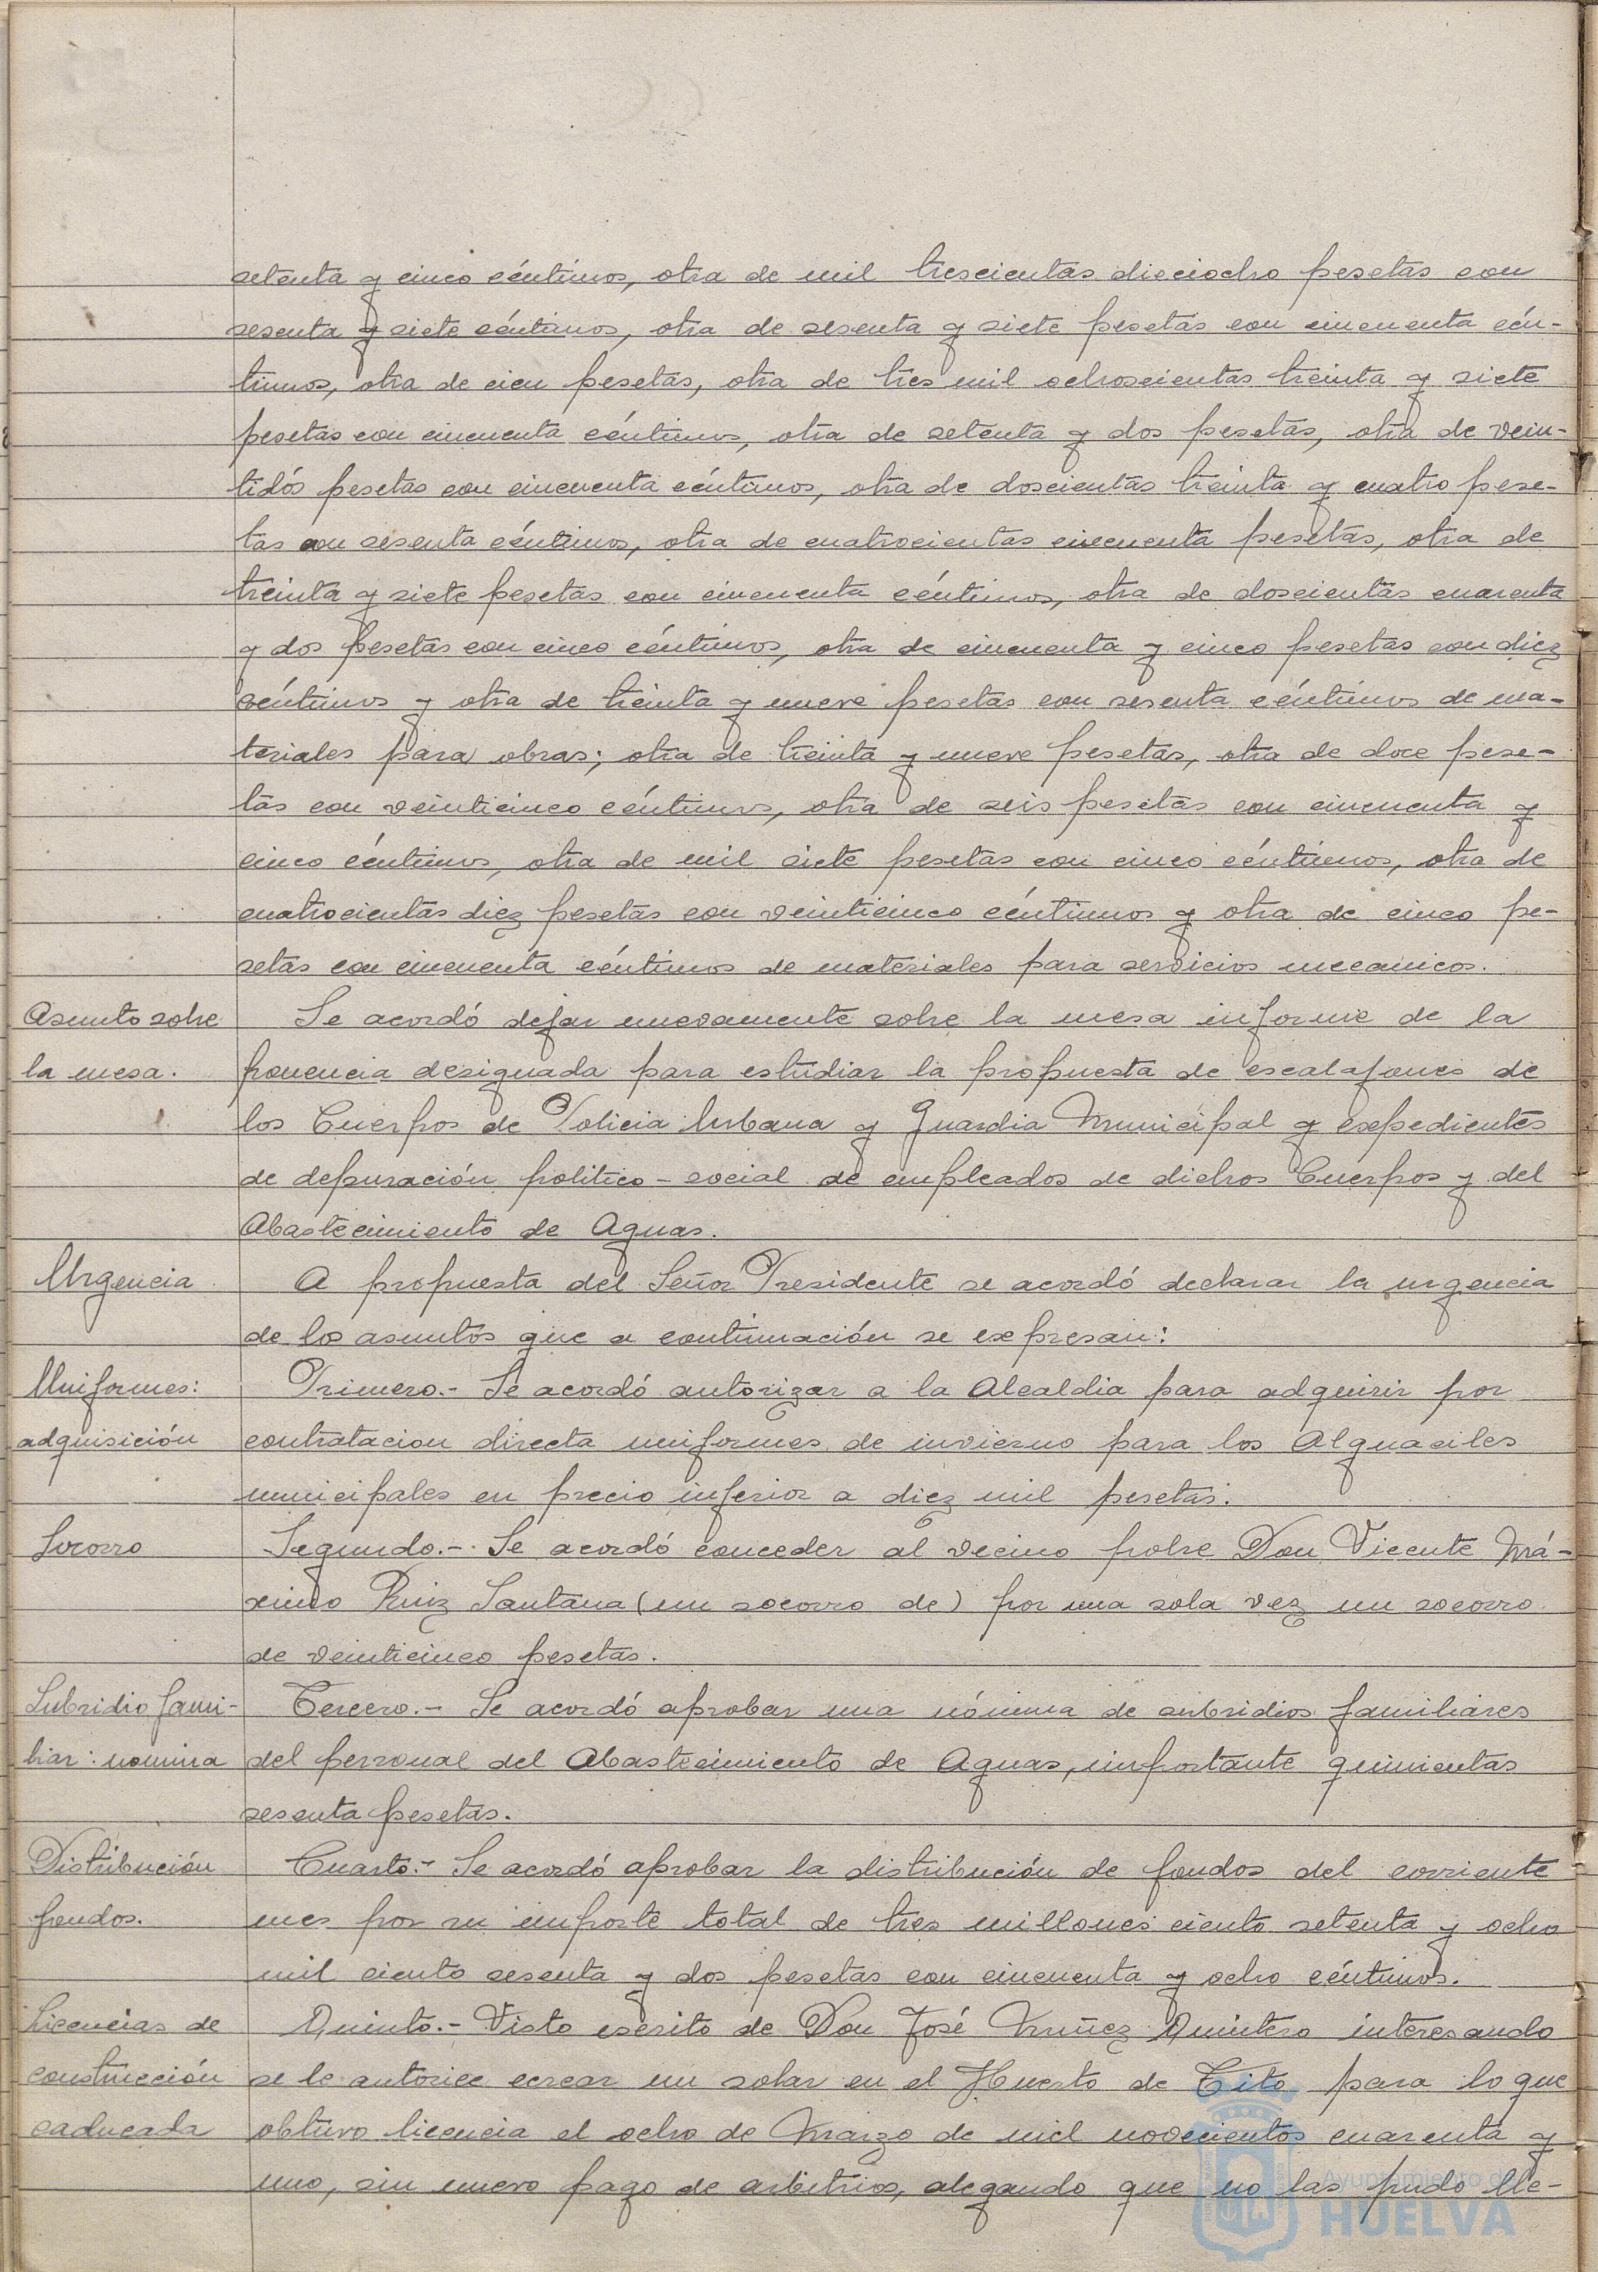 setenta y cinco céntimos, otra de mil trescientas dieciocho pesetas con
sesenta y siete céntimos, otra de sesenta y siete pesetas con cincuenta cén-
timos, otra de cien pesetas, otra de tres mil ochoscientas treinta y siete
pesetas con cincuenta céntimos, otra de setenta y dos pesetas, otra de vein-
tidós pesetas con cincuenta céntimos, otra de doscientas treinta y cuatro pese-
tas con sesenta céntimos, otra de cuatrocientas cincuenta pesetas, otra de
treinta y siete pesetas con cincuenta céntimos, otra de doscientas cuarenta
y dos pesetas con cinco céntimos, otra de cincuenta y cinco pesetas con diez
céntimos y otra de treinta y nueve pesetas con sesenta céntimos de ma-
teriales para obras; otra de treinta y nueve pesetas, otra de doce pese-
tas con veinticinco céntimos, otra de seis pesetas con cincuenta y
cinco céntimos, otra de mil siete pesetas con cinco céntimos, otra de
cuatrocientas diez pesetas con veinticinco céntimos y otra de cinco pe-
setas con cincuenta céntimos de materiales para servicios mecanicos.
Asunto sobre Se acordó dejar nuevamente sobre la mesa informe de la
la mesa. ponencia designada para estudiar la propuesta de escalafones de
los Cuerpos de Policia Urbana y Guardia Municipal y expedientes
de depuración politico-social de empleados de dichos Cuerpos y del
Abastecimiento de Aguas.
Urgencia A propuesta del Señor Presidente se acordó declarar la urgencia
de los asuntos que a continuación se expresan:
Uniformes: Primero.- Se acordó autorizar a la Alcaldia para adquirir por
adquisición contratacion directa uniformes de invierno para los Alguaciles
municipales en precio inferior a diez mil pesetas.
Socorro Segundo.- Se acordó conceder al vecino pobre Don Vicente Má-
ximo Ruiz Santana (un socorro de) por una sola vez un socorro
de veinticinco pesetas.
Subsidio fami- Tercero.- Se acordó aprobar una nómina de subsidios familiares
liar: nomina del personal del Abastecimiento de Aguas, importante quinientas
sesenta pesetas.
Distribución Cuarto.- Se acordó aprobar la distribución de fondos del corriente
fondos. mes por su importe total de tres millones ciento setenta y ocho
mil ciento sesenta y dos pesetas con cincuenta y ocho céntimos.
Licencias de Quinto.- Visto escrito de Don José Nuñez Quintero interesando
construcción se le autorice cercar un solar en el Huerto de Tito para lo que
caducada obtuvo licencia el ocho de Marzo de mil novecientos cuarenta y
uno, sin nuevo pago de arbitrios, alegando que no las pudo lle-
Ayuntamiento de
HUELVA